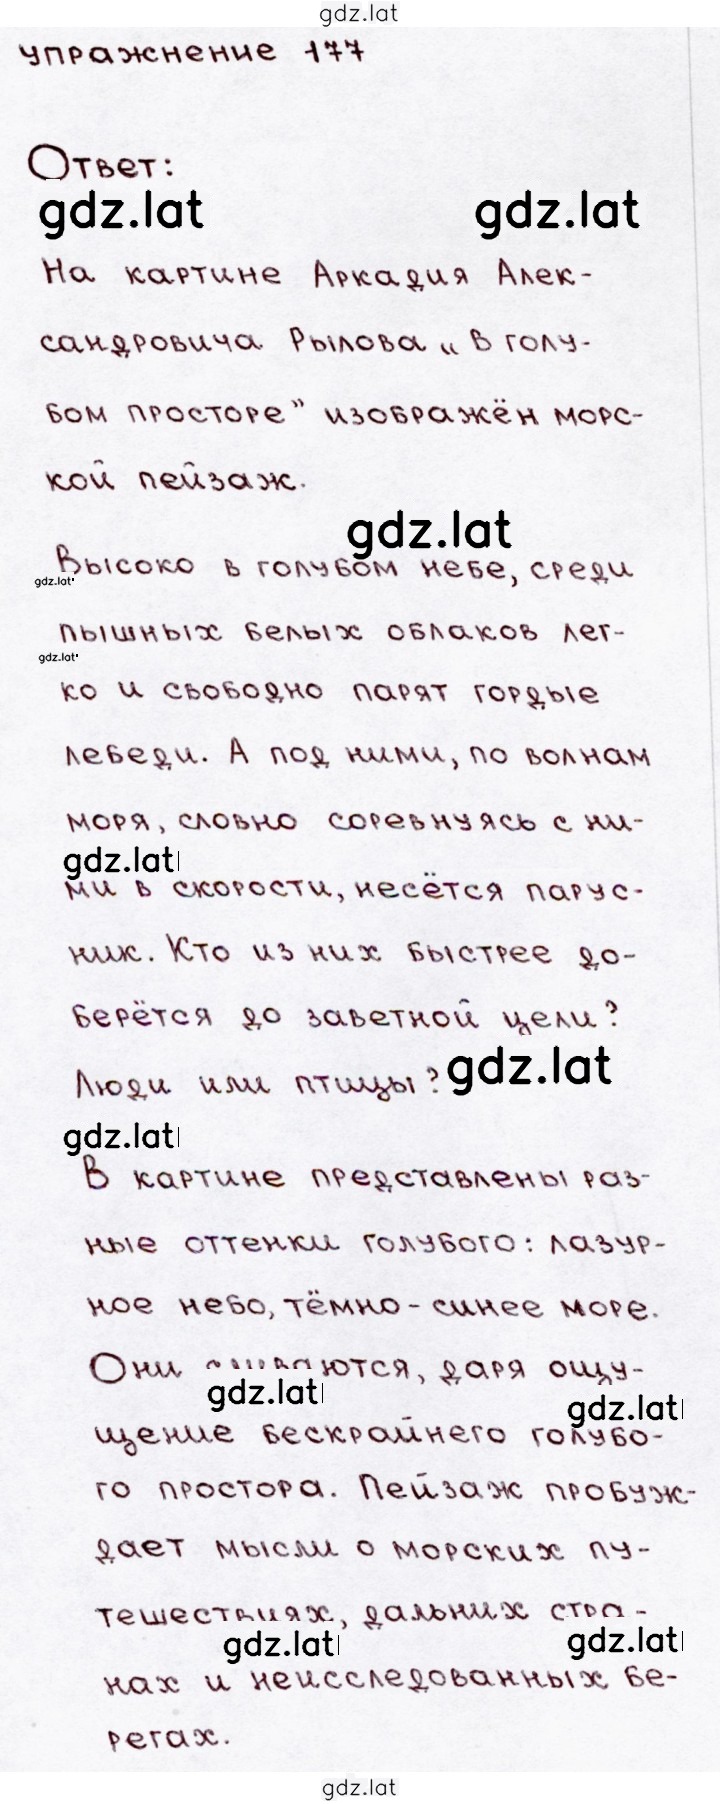 gdz.lat
упражнение 177
Ответ:
gdz.lat gdz.lat
На картине Аркадия Алек-
сандровича Рылова „В голу-
бом просторе” изображён морс-
кой пейзаж.
gdz.lat
Высоко в голубом небе, среди
gdz.lat
пышных белых облаков лег-
gdz.lat
ко и свободно парят гордые
лебеди. А под ними, по волнам
моря, словно соревнуясь с ни-
gdz.lat
ми в скорости, несётся парус-
ник. Кто из них быстрее до-
берётся до заветной цели?
Люди или птицы? gdz.lat
gdz.lat
В картине представлены раз-
ные оттенки голубого: лазур-
ное небо, тёмно-синее море.
Они сливаются, даря ощу-
gdz.lat gdz.lat
щение бескрайнего голубо-
го простора. Пейзаж пробуж-
дает мысли о морских пу-
тешествиях, дальних стра-
gdz.lat gdz.lat
нах и неисследованных бе-
регах.
gdz.lat